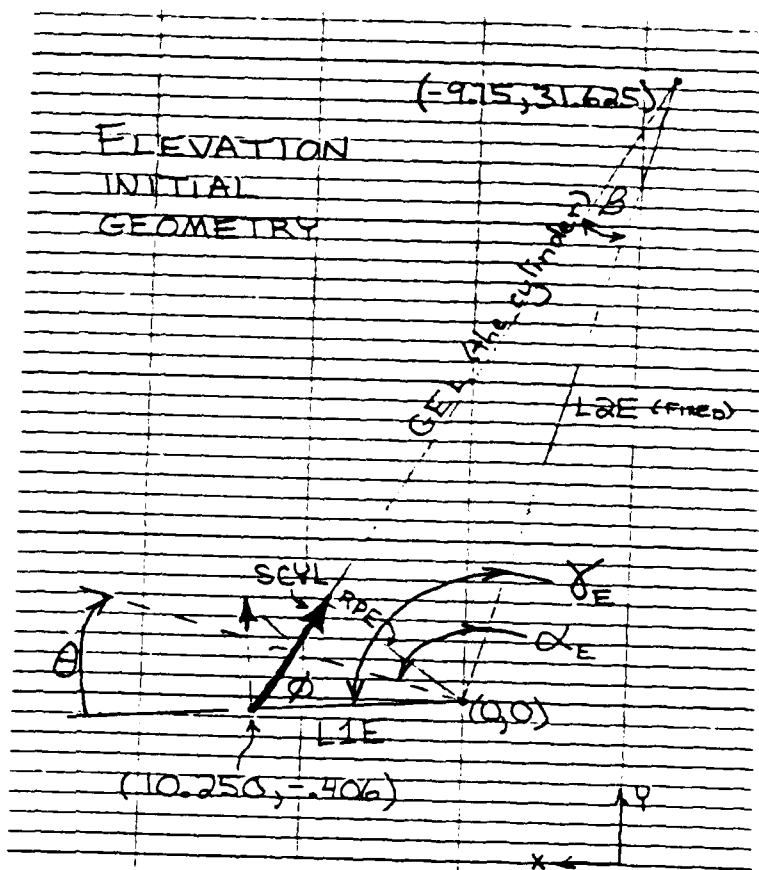 (-9.15, 31.625)
ELEVATION
INITIAL
GEOMETRY
β
GEL (the cylinder)
L2E (FIXED)
SCYL
RPE
γE
αE
θ
φ
(0,0)
L1E
(10.250, -.406)
Y
X